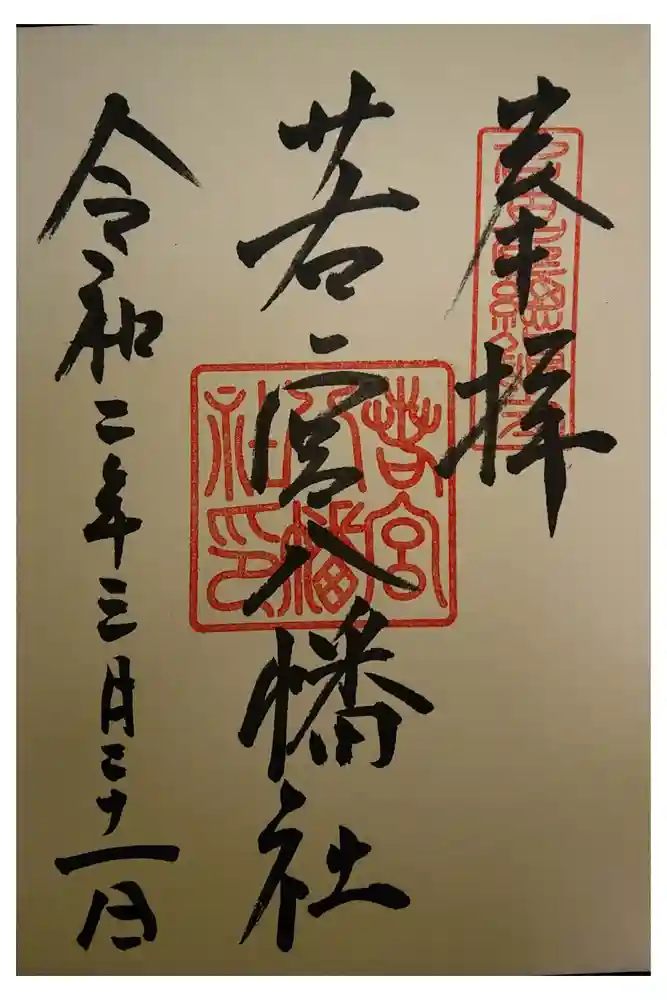 奉拝
若宮八幡社
若宮八幡社印
令和二年三月二十一日